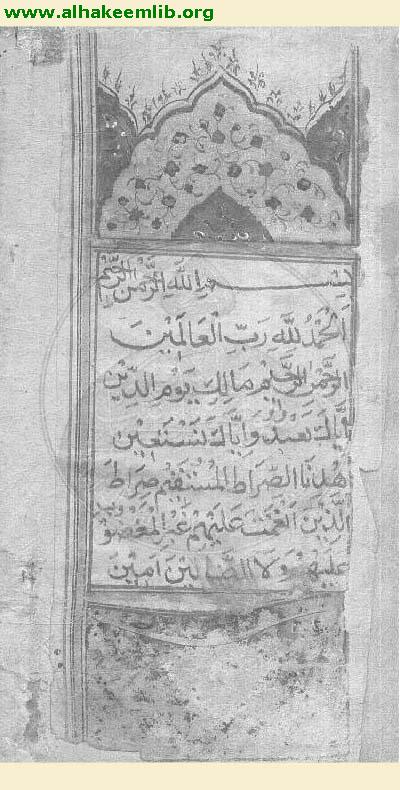 www.alhakeemlib.org
بسم الله الرحمن الرحيم
اَلْحَمْدُ لِلّٰهِ رَبِّ الْعَالَمِيْنَ
الرَّحْمٰنِ الرَّحِيْمِ مَالِكِ يَوْمِ الدِّيْنِ
اِيَّاكَ نَعْبُدُ وَاِيَّاكَ نَسْتَعِيْنُ
اِهْدِنَا الصِّرَاطَ الْمُسْتَقِيْمَ صِرَاطَ
الَّذِيْنَ اَنْعَمْتَ عَلَيْهِمْ غَيْرِ الْمَغْضُوْبِ
عَلَيْهِمْ وَلَا الضَّالِّيْنَ اٰمِيْنَ